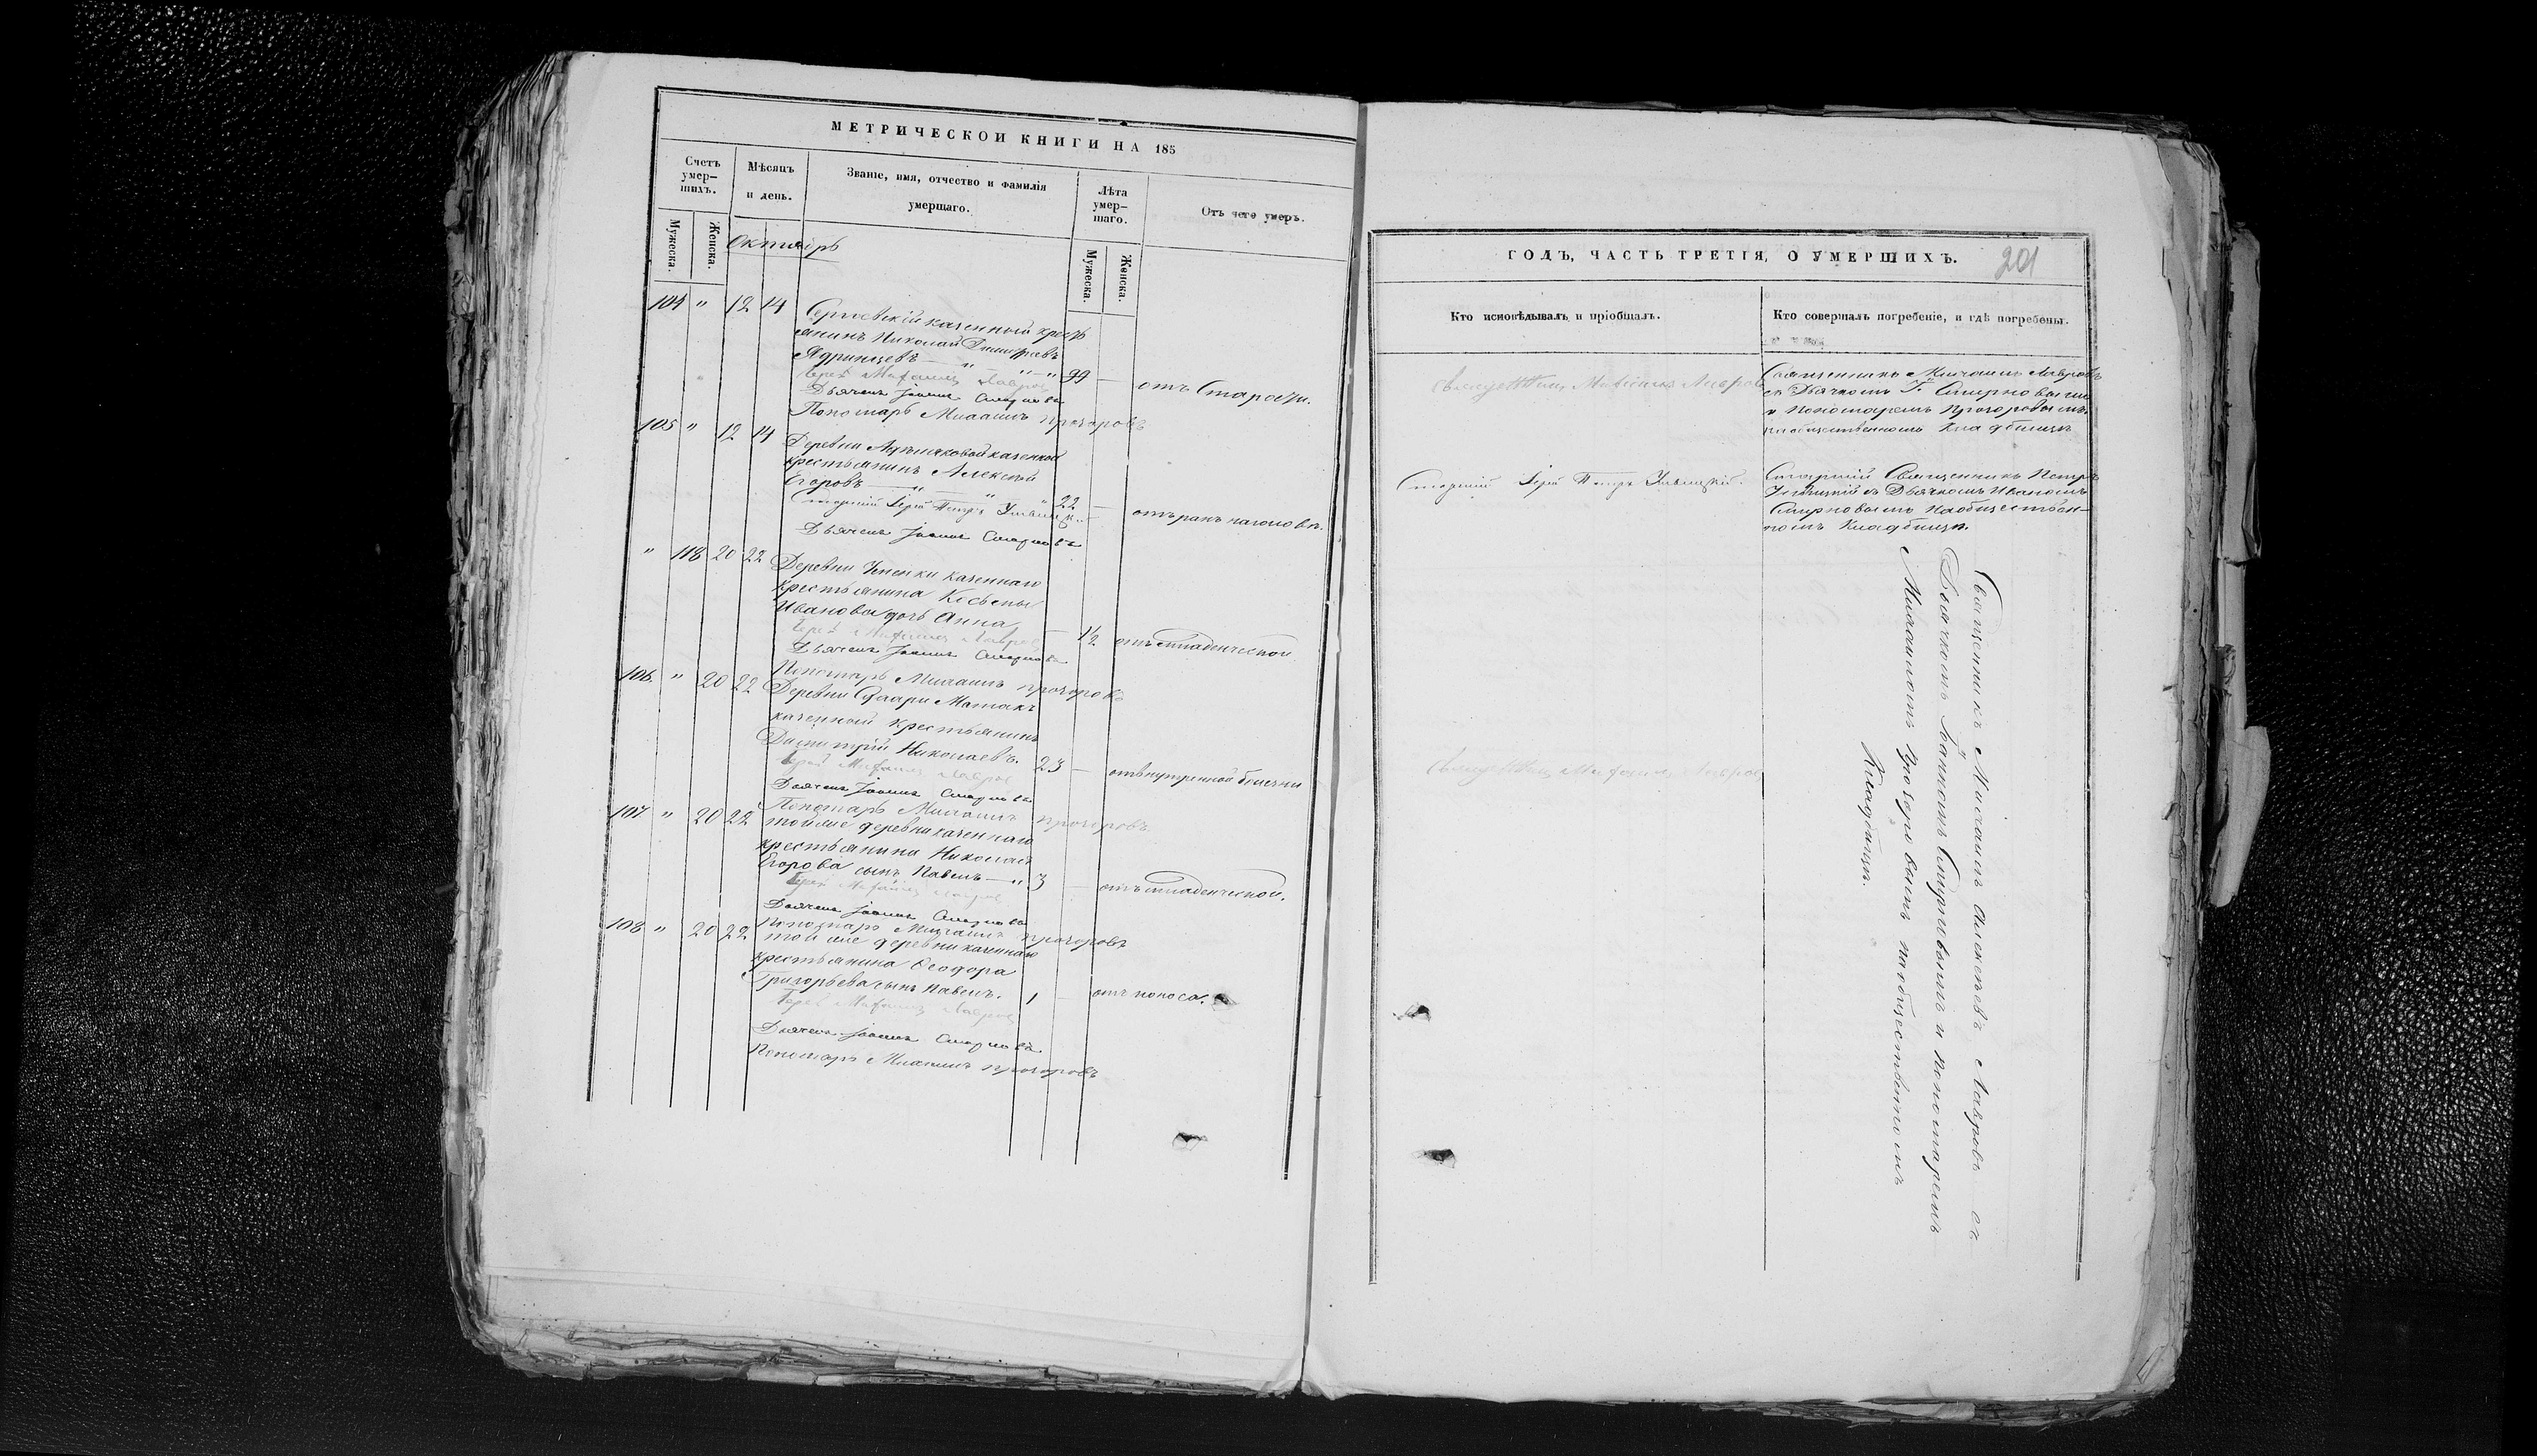 МЕТРИЧЕСКОЙ КНИГИ НА 185
Счетъ умер-шихъ.
Мѣсяцъ и день.
Званіе, имя, отчество и фамилія умершаго.
Лѣта умер-шаго.
Отъ чего умеръ.
Мужеска.
Женска.
Мужеска.
Женска.
Октябрь
104 " 12 14
казенный кресть
янинъ Николай Димитріевъ
Ядринцевъ — " — " — " 99 —
отъ Старости.
Іерей Михаилъ Лавровъ
Дьячекъ Іоаннъ Смирновъ
Пономарь Михаилъ Прохоровъ
105 " 12 14
Деревни казенной
крестьянинъ Алексѣй
Егоровъ — " — " — " 22 —
отъ ранъ на головѣ.
Старшій Іерей Петръ
Дьячекъ Іоаннъ Смирновъ
" 118 20 22
Деревни казеннаго
крестьянина
Иванова дочь Анна
— 1½
отъ младенческой
Іерей Михаилъ Лавровъ
Дьячекъ Іоаннъ Смирновъ
Пономарь Михаилъ Прохоровъ
106. " 20 22
Деревни
казенной крестьянинъ
Димитрій Николаевъ. 23 —
отъ внутренной болезни
Іерей Михаилъ Лавровъ
Дьячекъ Іоаннъ Смирновъ
Пономарь Михаилъ Прохоровъ
107 " 20 22
той же деревни казеннаго
крестьянина Николая
Егорова сынъ Павелъ — " 3 —
отъ младенческой.
Іерей Михаилъ Лавровъ
Дьячекъ Іоаннъ Смирновъ
Пономарь Михаилъ Прохоровъ
108 " 20 22
той же деревни казеннаго
крестьянина Ѳеодора
Григорьева сынъ Павелъ. 1 —
отъ поноса.
Іерей Михаилъ Лавровъ
Дьячекъ Іоаннъ Смирновъ
Пономарь Михаилъ Прохоровъ
ГОДЪ, ЧАСТЬ ТРЕТІЯ, О УМЕРШИХЪ.
201
Кто исповѣдывалъ и пріобщалъ.
Кто совершалъ погребеніе, и гдѣ погребены.
Священникъ Михаилъ Лавровъ
Священникъ Михаилъ Лавровъ
съ Дьячкомъ І. Смирновымъ
и Пономаремъ Прохоровымъ
на общественномъ Кладбищѣ
Старшій Іерей Петръ
Старшій Священникъ Петръ
съ Дьячкомъ Иваномъ
Смирновымъ на обществен-
номъ Кладбищѣ.
Священникъ Михаилъ Алексѣевъ Лавровъ съ
Дьячкомъ Іоанномъ Смирновымъ и Пономаремъ
Михаиломъ Прохоровымъ на общественномъ
Кладбищѣ.
Священникъ Михаилъ Лавровъ